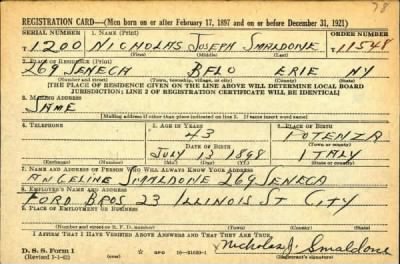 78
REGISTRATION CARD—(Men born on or after February 17, 1897 and on or before December 31, 1921)
SERIAL NUMBER 1. NAME (Print) ORDER NUMBER
T 1200 NICHOLAS JOSEPH SMALDONE T11548
(First) (Middle) (Last)
2. PLACE OF RESIDENCE (Print)
269 SENECA BFLO ERIE NY
(Number and street) (Town, township, village, or city) (County) (State)
[THE PLACE OF RESIDENCE GIVEN ON THE LINE ABOVE WILL DETERMINE LOCAL BOARD
JURISDICTION; LINE 2 OF REGISTRATION CERTIFICATE WILL BE IDENTICAL]
3. MAILING ADDRESS
SAME
[Mailing address if other than place indicated on line 2. If same insert word same]
4. TELEPHONE 5. AGE IN YEARS 6. PLACE OF BIRTH
43 POTENZA
DATE OF BIRTH (Town or county)
JULY 13 1898 ITALY
(Exchange) (Number) (Mo.) (Day) (Yr.) (State or country)
7. NAME AND ADDRESS OF PERSON WHO WILL ALWAYS KNOW YOUR ADDRESS
ANGELINE SMALDONE 269 SENECA
8. EMPLOYER'S NAME AND ADDRESS
FORD BROS 23 ILLINOIS ST CITY
9. PLACE OF EMPLOYMENT OR BUSINESS
(Number and street or R. F. D. number) (Town) (County) (State)
I AFFIRM THAT I HAVE VERIFIED ABOVE ANSWERS AND THAT THEY ARE TRUE.
D. S. S. Form 1
(Revised 1-1-42) GPO 16—21630-1
Nicholas J. Smaldone
(Registrant's signature)